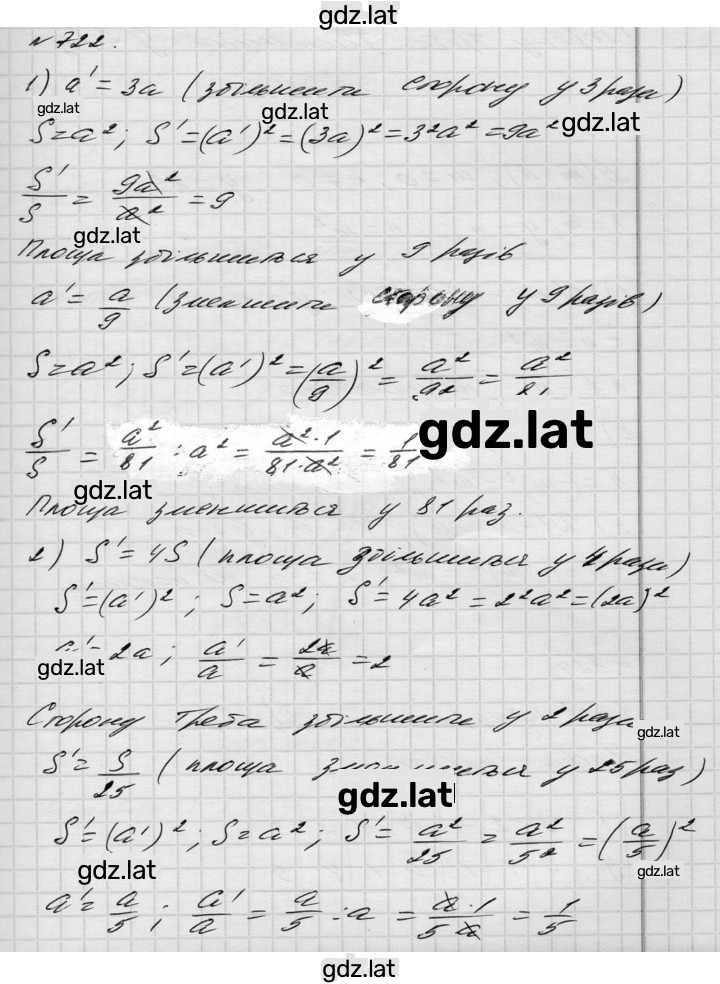 gdz.lat
№ 722.
1) a' = 3a (збільшити сторону у 3 рази)
gdz.lat gdz.lat
S = a²; S' = (a')² = (3a)² = 3²a² = 9a² gdz.lat
S'/S = 9a²/a² = 9
gdz.lat
Площа збільшиться у 9 разів
a' = a/9 (зменшити сторону у 9 разів)
S = a²; S' = (a')² = (a/9)² = a²/9² = a²/81
S'/S = a²/81 : a² = a²·1/81·a² = 1/81 gdz.lat
gdz.lat
Площа зменшиться у 81 раз.
2) S' = 4S (площа збільшиться у 4 рази)
S' = (a')²; S = a²; S' = 4a² = 2²a² = (2a)²
gdz.lat
a' = 2a; a'/a = 2a/a = 2
Сторону треба збільшити у 2 рази
gdz.lat
S' = S/25 (площа зменшиться у 25 раз)
gdz.lat
S' = (a')²; S = a²; S' = a²/25 = a²/5² = (a/5)²
gdz.lat gdz.lat
a' = a/5; a'/a = a/5 : a = a·1/5a = 1/5
gdz.lat